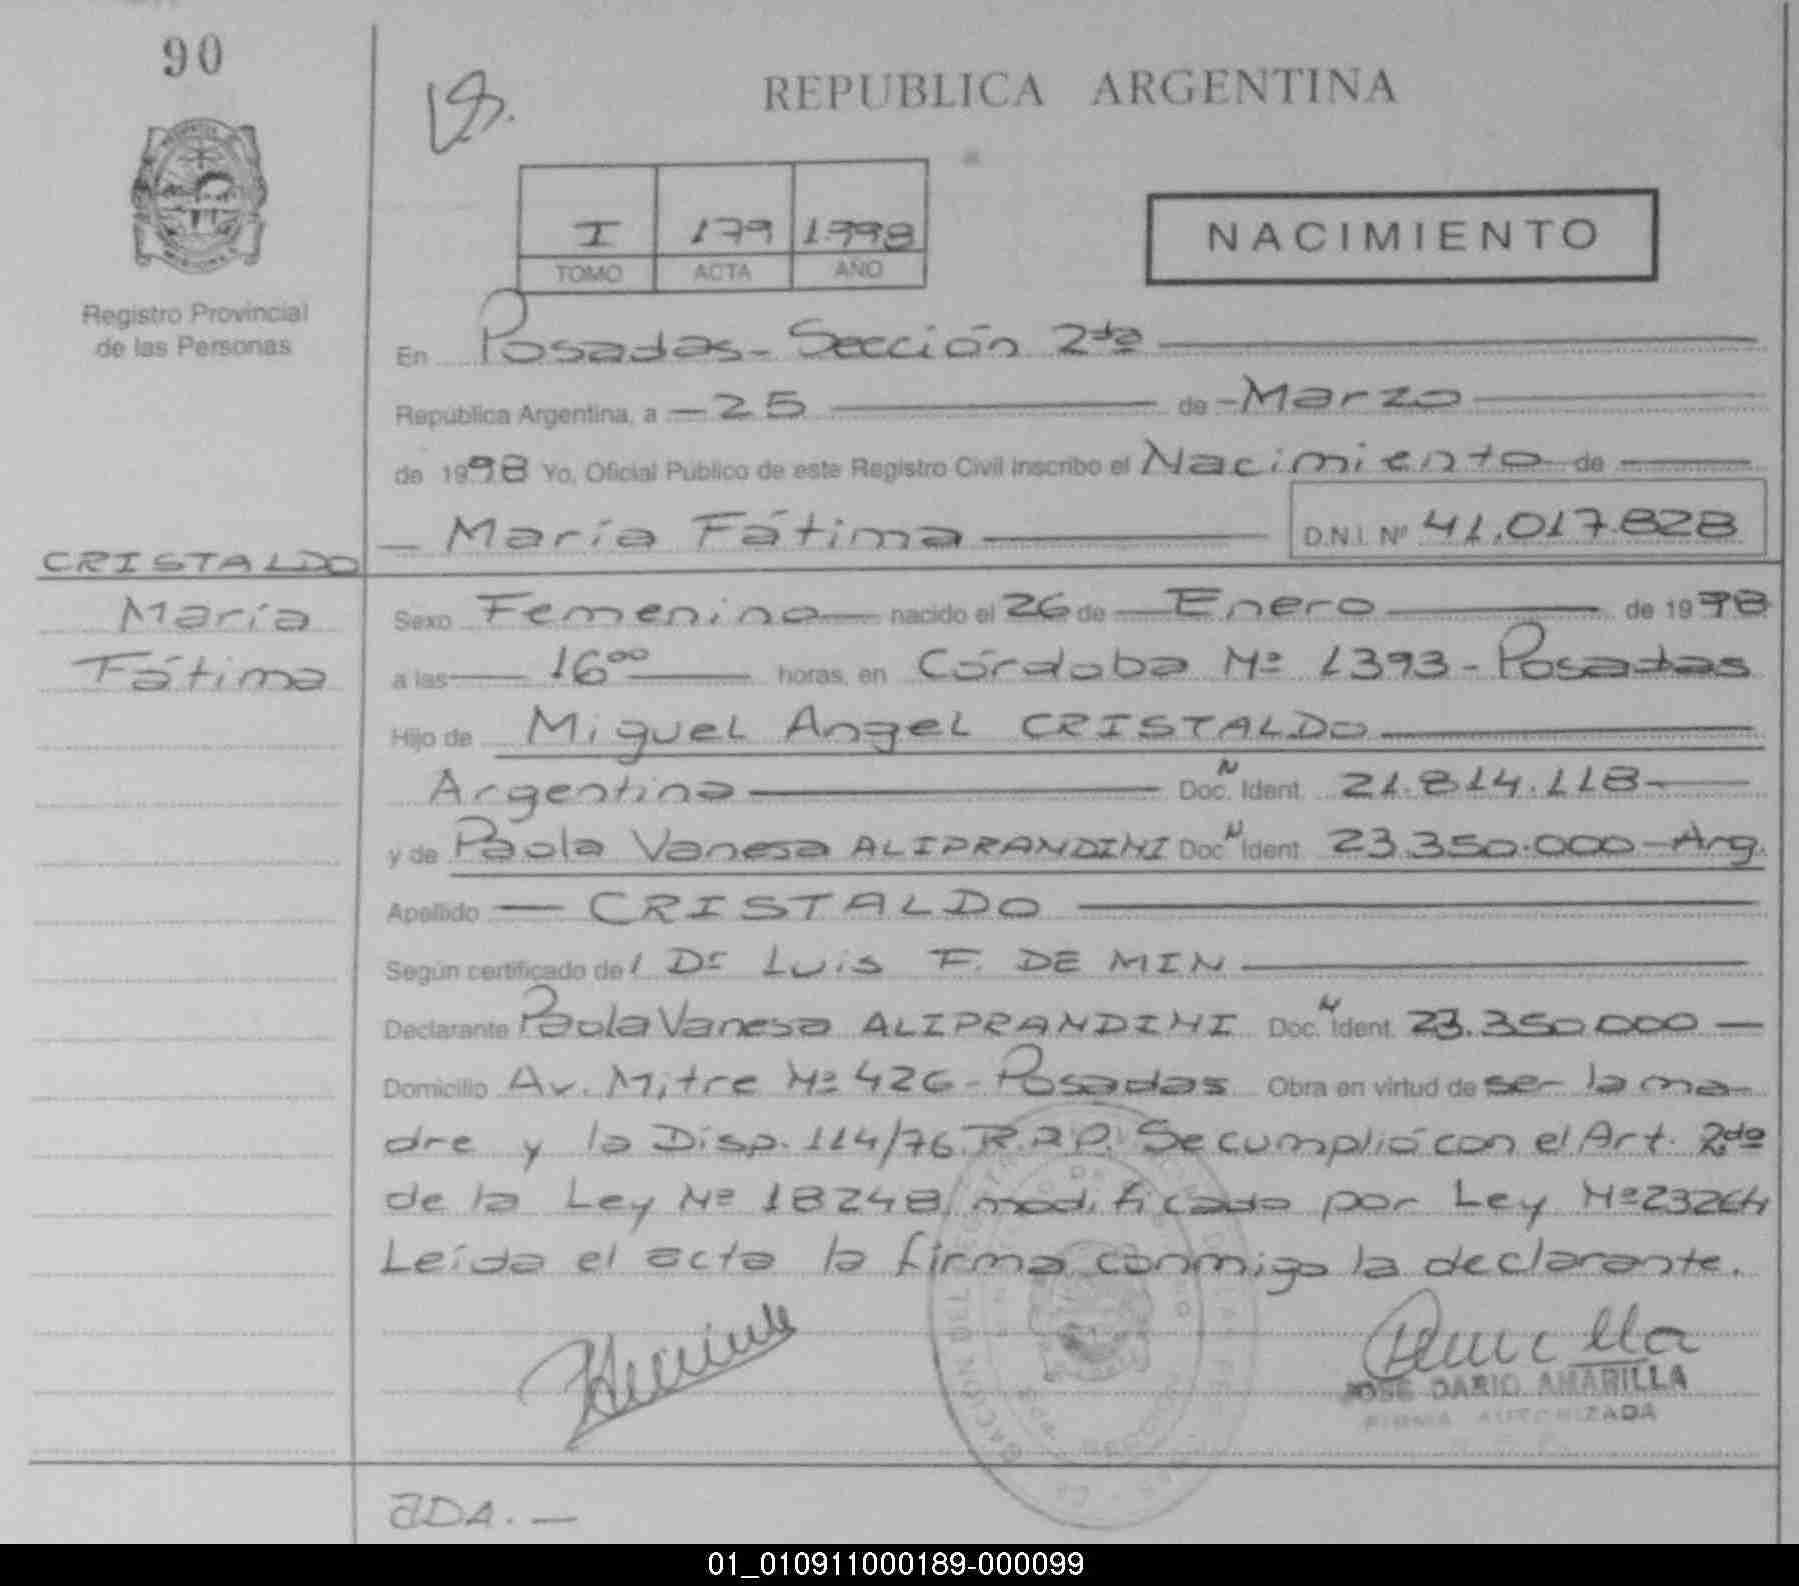 90
REPUBLICA ARGENTINA
I 179 1.998
TOMO ACTA AÑO
NACIMIENTO
Registro Provincial
de las Personas
En Posadas - Sección 2da
República Argentina, a 25 de Marzo
de 1998 Yo, Oficial Público de este Registro Civil inscribo el Nacimiento de
María Fátima D.N.I. Nº 41.017.828
CRISTALDO
María
Fátima
Sexo Femenino nacido el 26 de Enero de 1998
a las 16 00 horas, en Córdoba Nº 1393 - Posadas
Hijo de Miguel Angel CRISTALDO
Argentina Doc. N Ident. 21.814.118
y de Paola Vanesa ALIPRANDINI Doc. N Ident. 23.350.000 - Arg.
Apellido CRISTALDO
Según certificado del Dr Luis F. DE MIN
Declarante Paola Vanesa ALIPRANDINI Doc. N Ident. 23.350.000
Domicilio Av. Mitre Nº 426 - Posadas Obra en virtud de ser la ma-
dre y la Disp. 114/76 R.P.P. Se cumplió con el Art. 2do
de la Ley Nº 18248 modificado por Ley Nº 23264
Leída el acta la firma conmigo la declarante.
JOSE DARIO AMARILLA
FIRMA AUTORIZADA
ADA.
01_010911000189-000099